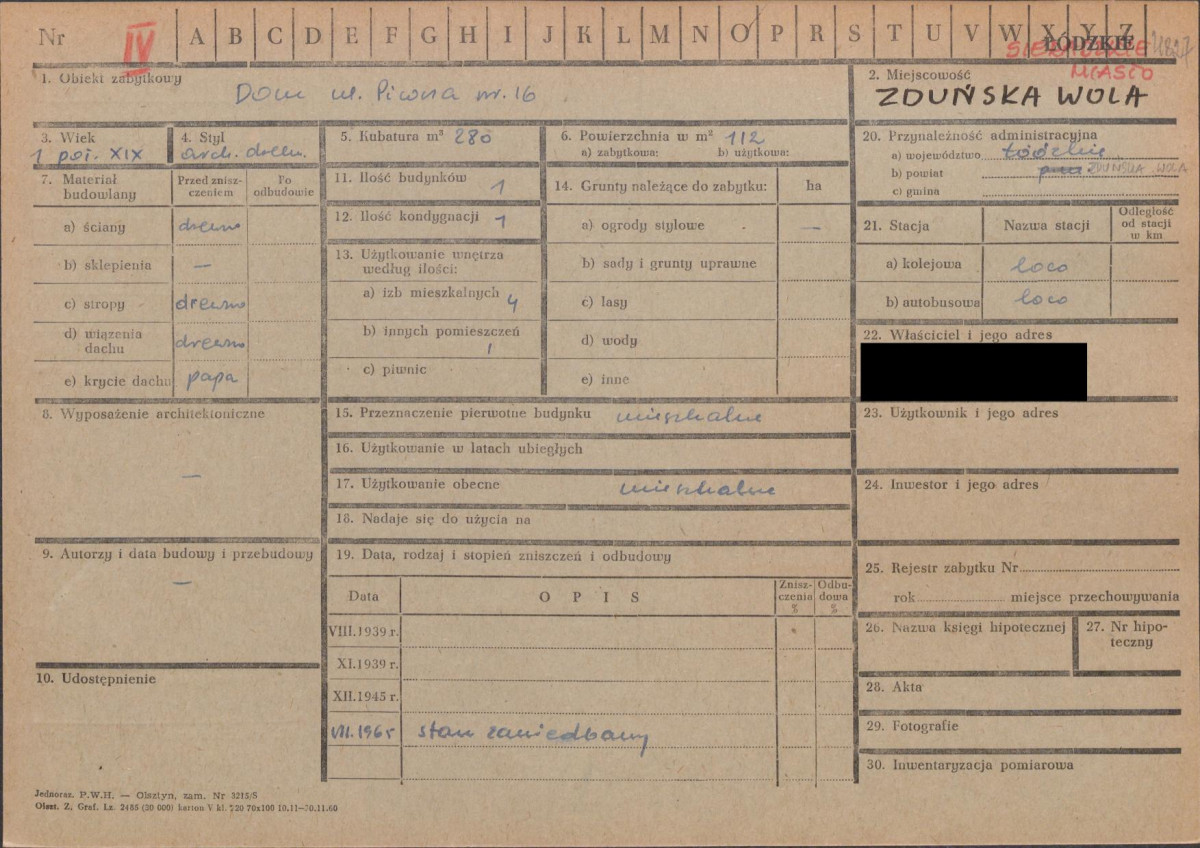 Nr IV A B C D E F G H I J K L M N O P R S T U V W X Y Z
ŁÓDZKIE
SIERADZKIE
MIASTO
1. Obiekt zabytkowy
Dom ul. Piwna nr. 16
2. Miejscowość
ZDUŃSKA WOLA
3. Wiek
1 poł. XIX
4. Styl
arch. drewn.
5. Kubatura m³ 280
6. Powierzchnia w m² 112
a) zabytkowa: b) użytkowa:
7. Materiał budowlany
Przed zniszczeniem
Po odbudowie
a) ściany drewno
b) sklepienia —
c) stropy drewno
d) wiązenia dachu drewno
e) krycie dachu papa
8. Wyposażenie architektoniczne
—
9. Autorzy i data budowy i przebudowy
—
10. Udostępnienie
11. Ilość budynków 1
12. Ilość kondygnacji 1
13. Użytkowanie wnętrza
według ilości:
a) izb mieszkalnych 4
b) innych pomieszczeń 1
c) piwnic
14. Grunty należące do zabytku: ha
a) ogrody stylowe —
b) sady i grunty uprawne
c) lasy
d) wody
e) inne
15. Przeznaczenie pierwotne budynku mieszkalne
16. Użytkowanie w latach ubiegłych
17. Użytkowanie obecne mieszkalne
18. Nadaje się do użycia na
19. Data, rodzaj i stopień zniszczeń i odbudowy
Data OPIS Zniszczenia % Odbudowa %
VIII.1939 r.
XI.1939 r.
XII.1945 r.
VII.1965 stan zaniedbany
20. Przynależność administracyjna
a) województwo Łódzkie
b) powiat ZDUŃSKA WOLA
c) gmina
21. Stacja Nazwa stacji Odległość od stacji w km
a) kolejowa loco
b) autobusowa loco
22. Właściciel i jego adres
23. Użytkownik i jego adres
24. Inwestor i jego adres
25. Rejestr zabytku Nr
rok miejsce przechowywania
26. Nazwa księgi hipotecznej
27. Nr hipoteczny
28. Akta
29. Fotografie
30. Inwentaryzacja pomiarowa
Jednoraz. P.W.H. — Olsztyn, zam. Nr 3213/S
Olszt. Z. Graf. Lz. 2485 (30 000) karton V kl. 220 70x100 10.11—30.11.60